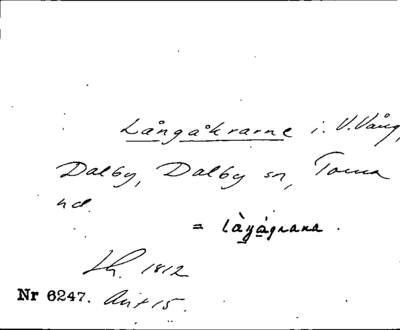 Långåkrarne i V. Vång,
Dalby, Dalby sn, Torna
hd.
= làgágrana.
Lh. 1812
Nr 6247. Akt 15.